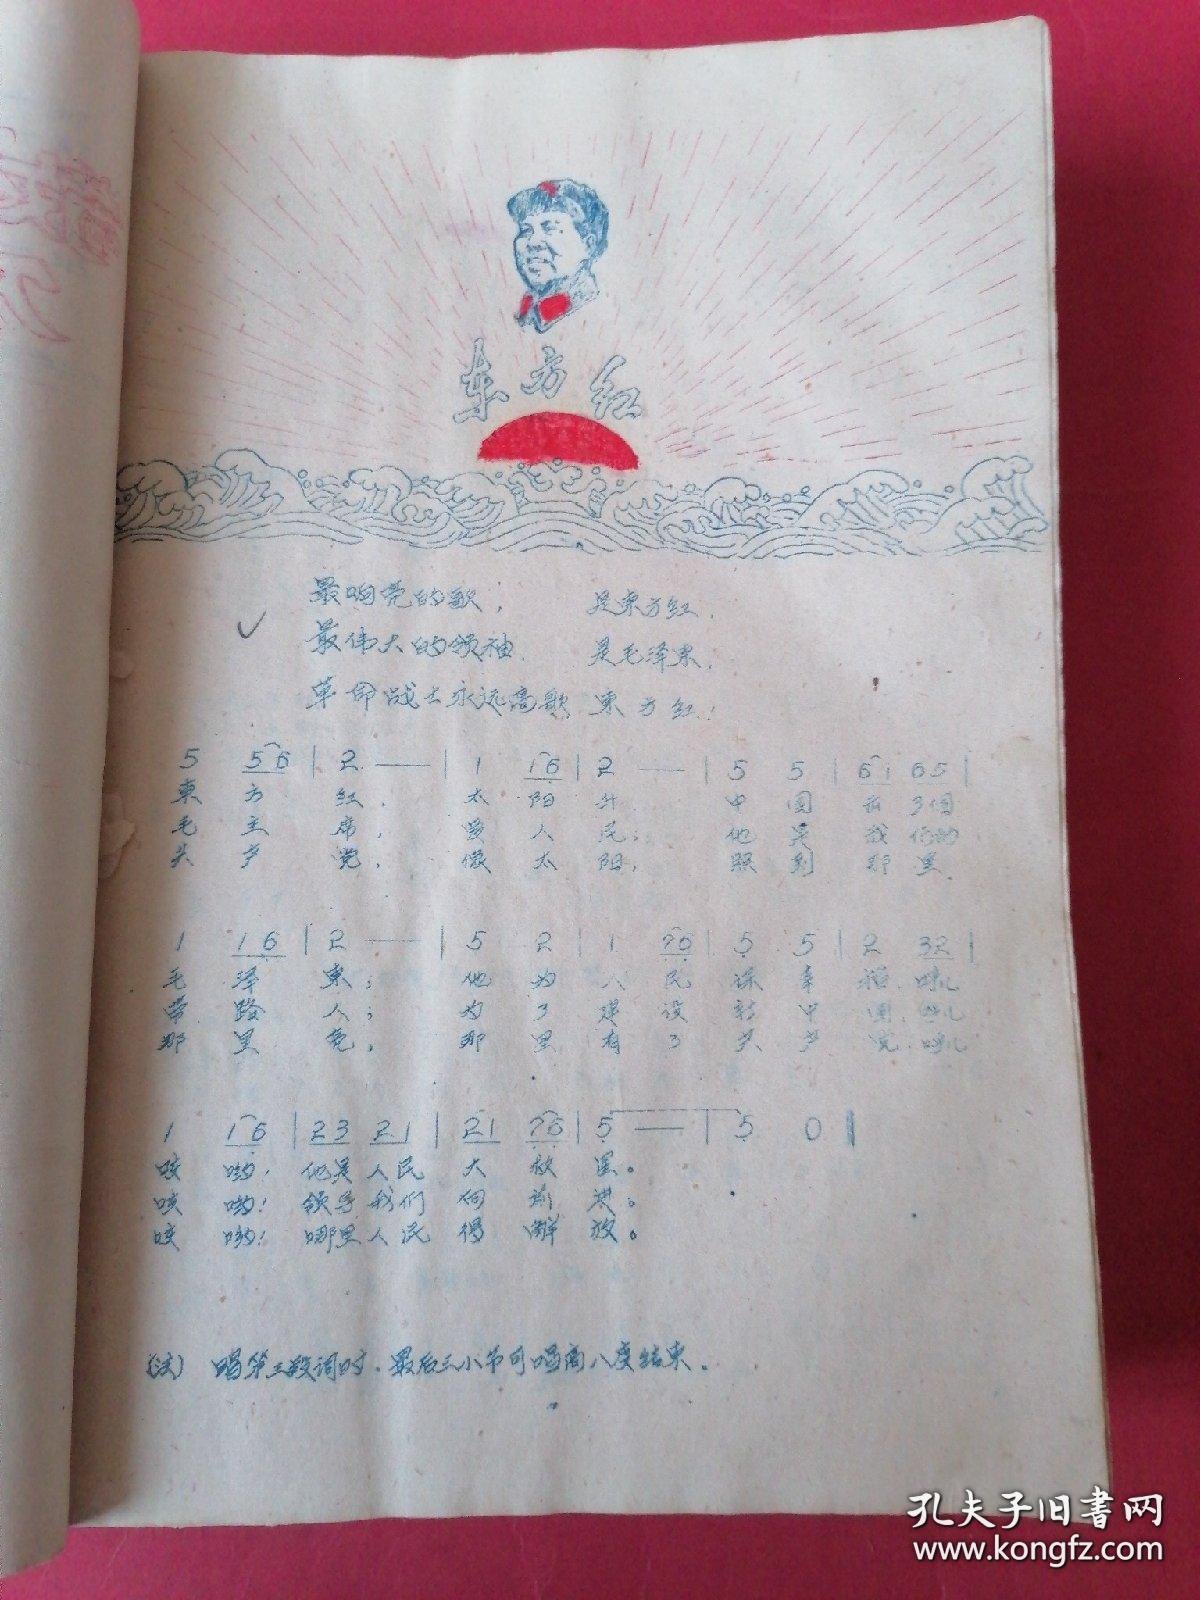 东方红
最响亮的歌， 是东方红，
最伟大的领袖 是毛泽东，
革命战士永远高歌 东方红！
5 56 | 2 — | 1 16 | 2 — | 5 5 | 61 65 |
东 方 红， 太 阳 升 中 国 出 了个
毛 主 席， 爱 人 民； 他 是 我 们的
共 产 党， 像 太 阳， 照 到 那 里
1 16 | 2 — | 5 2 | 1 76 | 5 5 | 2 32 |
毛 泽 东； 他 为 人 民 谋 幸 福 呼儿
带 路 人； 为 了 建 设 新 中 国 呼儿
那 里 亮， 那 里 有 了 共 产 党 呼儿
1 16 | 23 21 | 21 76 | 5 — | 5 0 |
咳 哟， 他是 人民 大 救 星。
咳 哟！ 领导 我们 向 前 进。
咳 哟！ 哪里 人民 得 解 放。
（注） 唱第三段词时，最后三小节可唱高八度结束。
孔夫子旧书网
www.kongfz.com